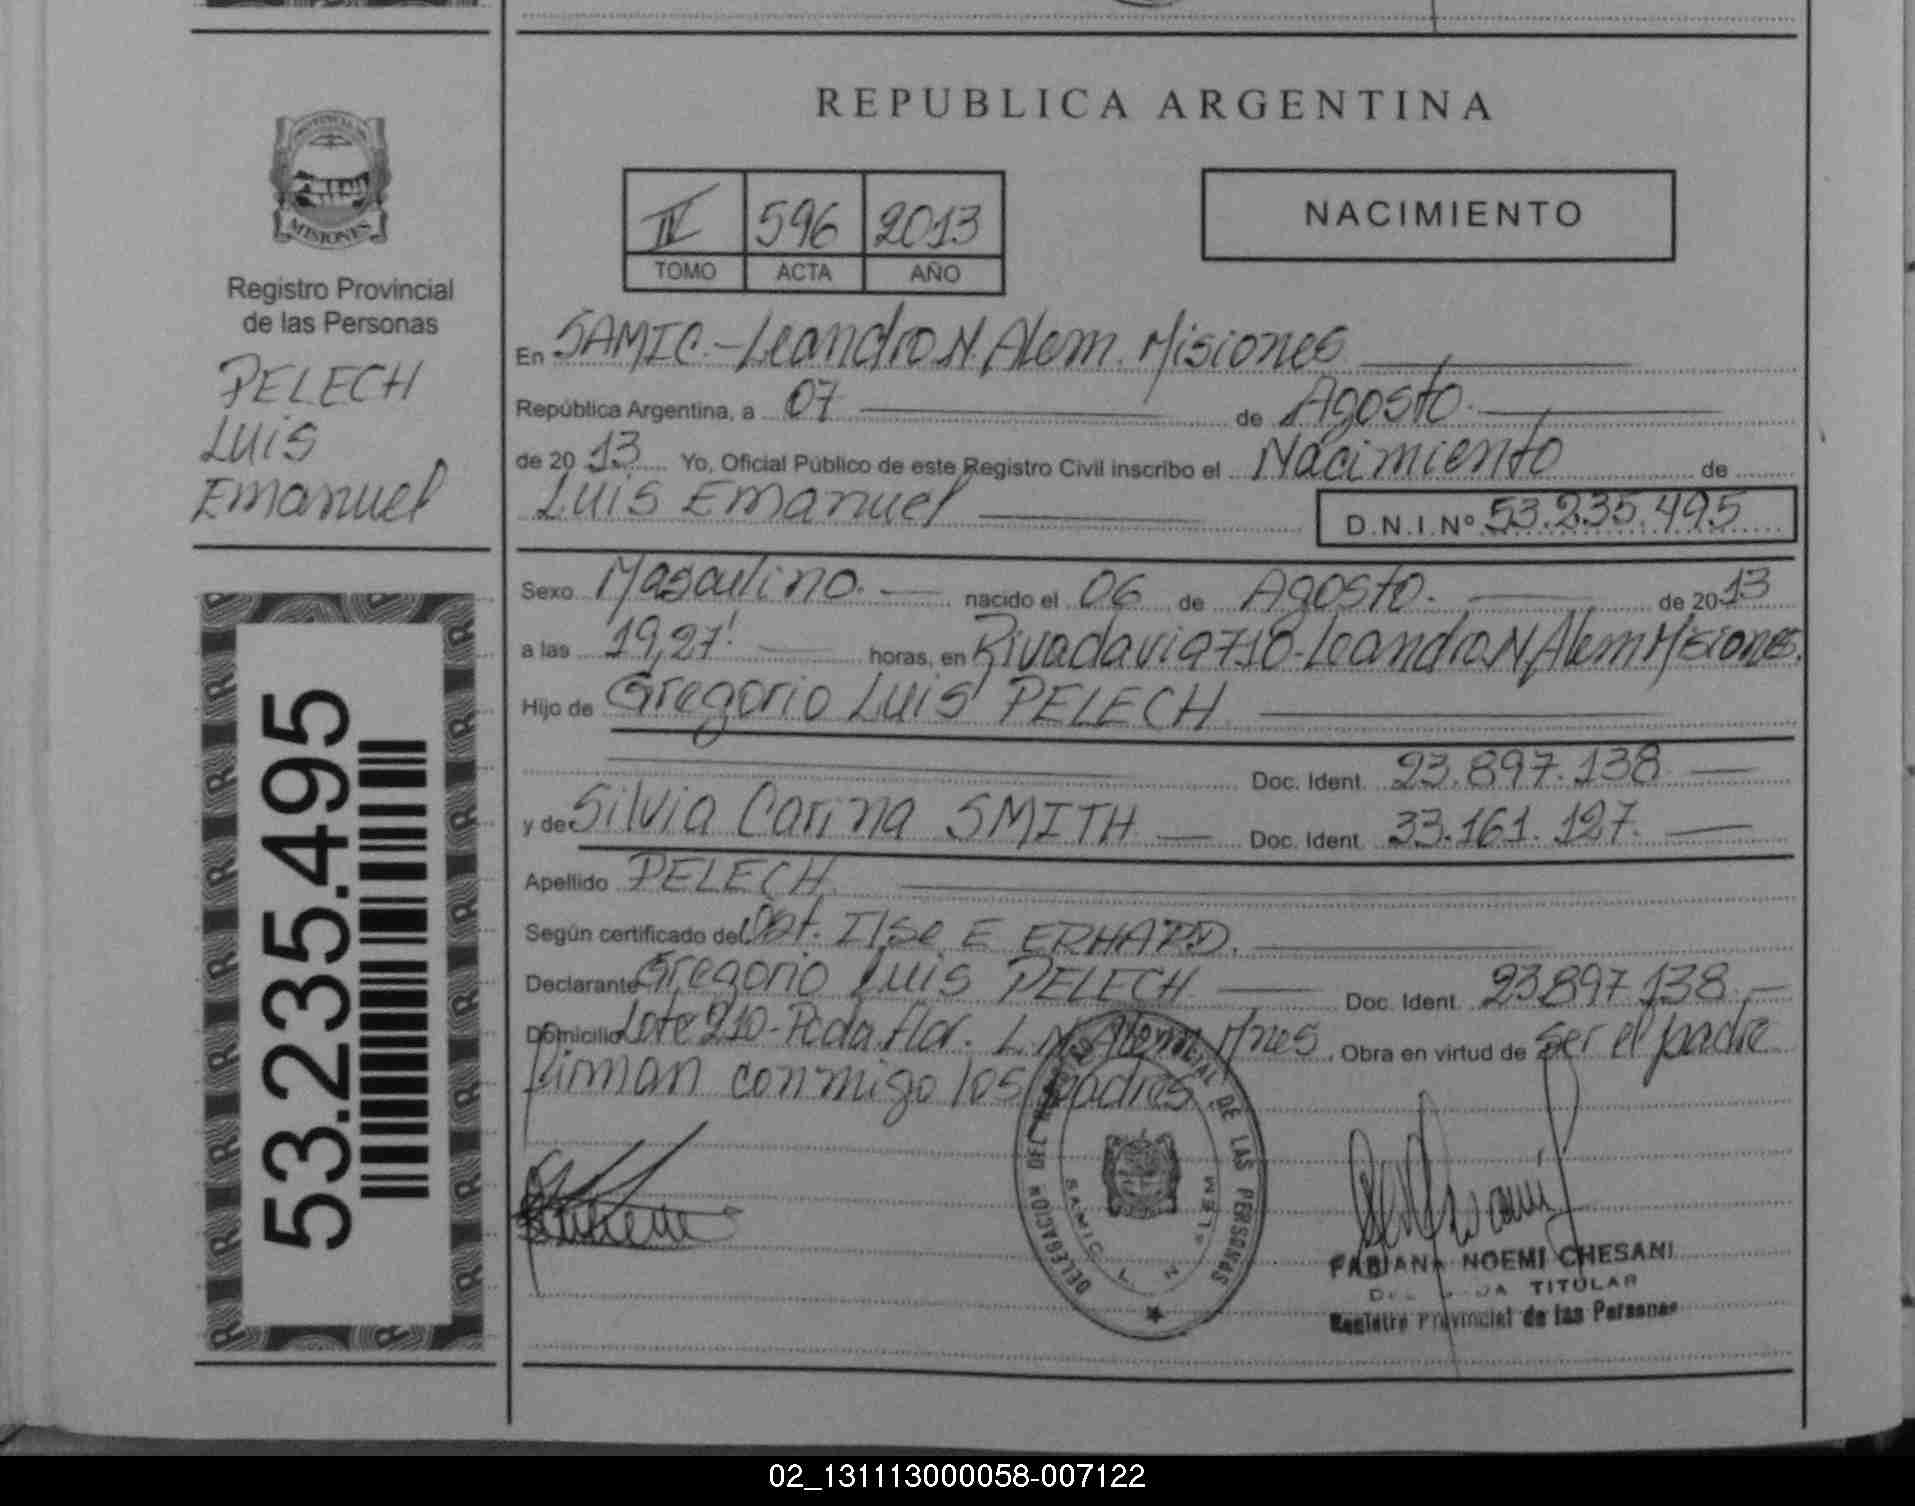 REPUBLICA ARGENTINA
PROVINCIA DE
MISIONES
Registro Provincial
de las Personas
PELECH
Luis
Emanuel
53.235.495
IV 596 2013
TOMO ACTA AÑO
NACIMIENTO
En SAMIC.-Leandro N. Alem. Misiones
República Argentina, a 07 de Agosto.
de 20 13 Yo, Oficial Público de este Registro Civil inscribo el Nacimiento de
Luis Emanuel D.N.I.Nº 53.235.495
Sexo Masculino. nacido el 06 de Agosto. de 20 13
a las 19,27' horas, en Rivadavia 710-Leandro N Alem Misiones.
Hijo de Gregorio Luis PELECH
Doc. Ident. 23.897.138
y de Silvia Carina SMITH Doc. Ident. 33.161.127.
Apellido PELECH
Según certificado de Obt. Ilse E ERHARD.
Declarante Gregorio Luis PELECH Doc. Ident. 23897138.
Domicilio Lote 210-Pcda. flor. L.N. Alem Mnes. Obra en virtud de ser el padre
firman conmigo los padres
DELEGACION DEL REGISTRO PROVINCIAL DE LAS PERSONAS
SAMIC L. N. ALEM
FABIANA NOEMI CHESANI
TITULAR
Registro Provincial de las Personas
02_131113000058-007122